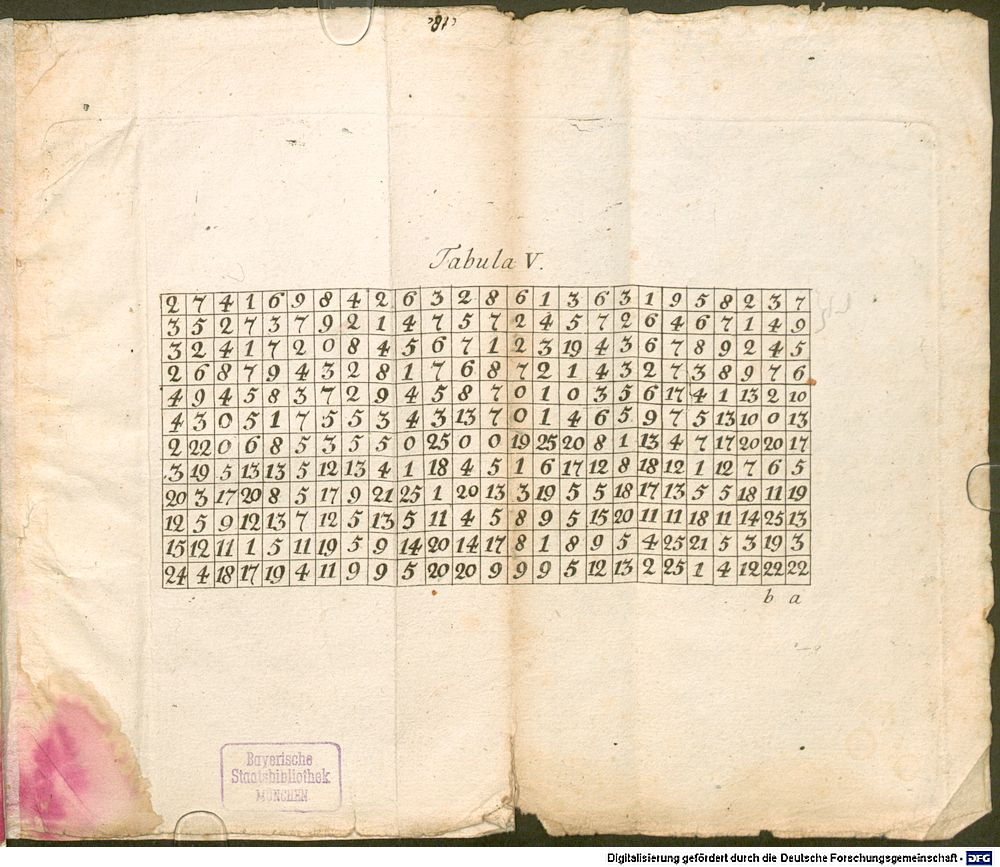 "18"
Tabula V.
2 7 4 1 6 9 8 4 2 6 3 2 8 6 1 3 6 3 1 9 5 8 2 3 7
3 5 2 7 3 7 9 2 1 4 7 5 7 2 4 5 7 2 6 4 6 7 1 4 9
3 2 4 1 7 2 0 8 4 5 6 7 1 2 3 19 4 3 6 7 8 9 2 4 5
2 6 8 7 9 4 3 2 8 1 7 6 8 7 2 1 4 3 2 7 3 8 9 7 6
4 9 4 5 8 3 7 2 9 4 5 8 7 0 1 0 3 5 6 17 4 1 13 2 10
4 3 0 5 1 7 5 5 3 4 3 13 7 0 1 4 6 5 9 7 5 13 10 0 13
2 22 0 6 8 5 3 5 5 0 25 0 0 19 25 20 8 1 13 4 7 17 20 20 17
3 19 5 13 13 5 12 13 4 1 18 4 5 1 6 17 12 8 18 12 1 12 7 6 5
20 3 17 20 8 5 17 9 21 25 1 20 13 3 19 5 5 18 17 13 5 5 18 11 19
12 5 9 12 13 7 12 5 13 5 11 4 5 8 9 5 15 20 11 11 18 11 14 25 13
15 12 11 1 5 11 19 5 9 14 20 14 17 8 1 8 9 5 4 25 21 5 3 19 3
24 4 18 17 19 4 11 9 9 5 20 20 9 9 9 5 12 13 2 25 1 4 12 22 22
b a
Bayerische
Staatsbibliothek
MÜNCHEN
Digitalisierung gefördert durch die Deutsche Forschungsgemeinschaft - DFG